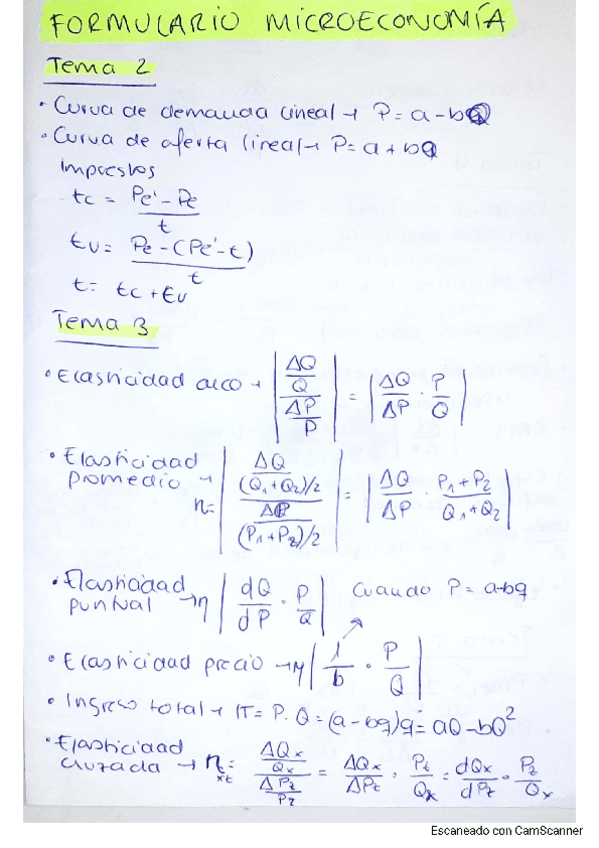 FORMULARIO MICROECONOMÍA
Tema 2
· Curva de demanda lineal → P = a - bQ
· Curva de oferta lineal → P = a + bQ
impuestos
tc = (Pe' - Pe) / t
tv = (Pe - (Pe' - t)) / t
t = tc + tv
Tema 3
· Elasticidad arco → |(ΔQ/Q) / (ΔP/P)| = |ΔQ/ΔP · P/Q|
· Elasticidad promedio → η = |(ΔQ / (Q1+Q2)/2) / (ΔP / (P1+P2)/2)| = |ΔQ/ΔP · (P1+P2)/(Q1+Q2)|
· Elasticidad puntual → η |dQ/dP · P/Q| cuando P = a-bq
· Elasticidad precio → η |1/b · P/Q|
· Ingreso total → IT = P·Q = (a - bq)q = aQ - bQ²
· Elasticidad cruzada → ηxz = (ΔQx/Qx) / (ΔPz/Pz) = ΔQx/ΔPz · Pz/Qx = dQx/dPz · Pz/Qx
Escaneado con CamScanner